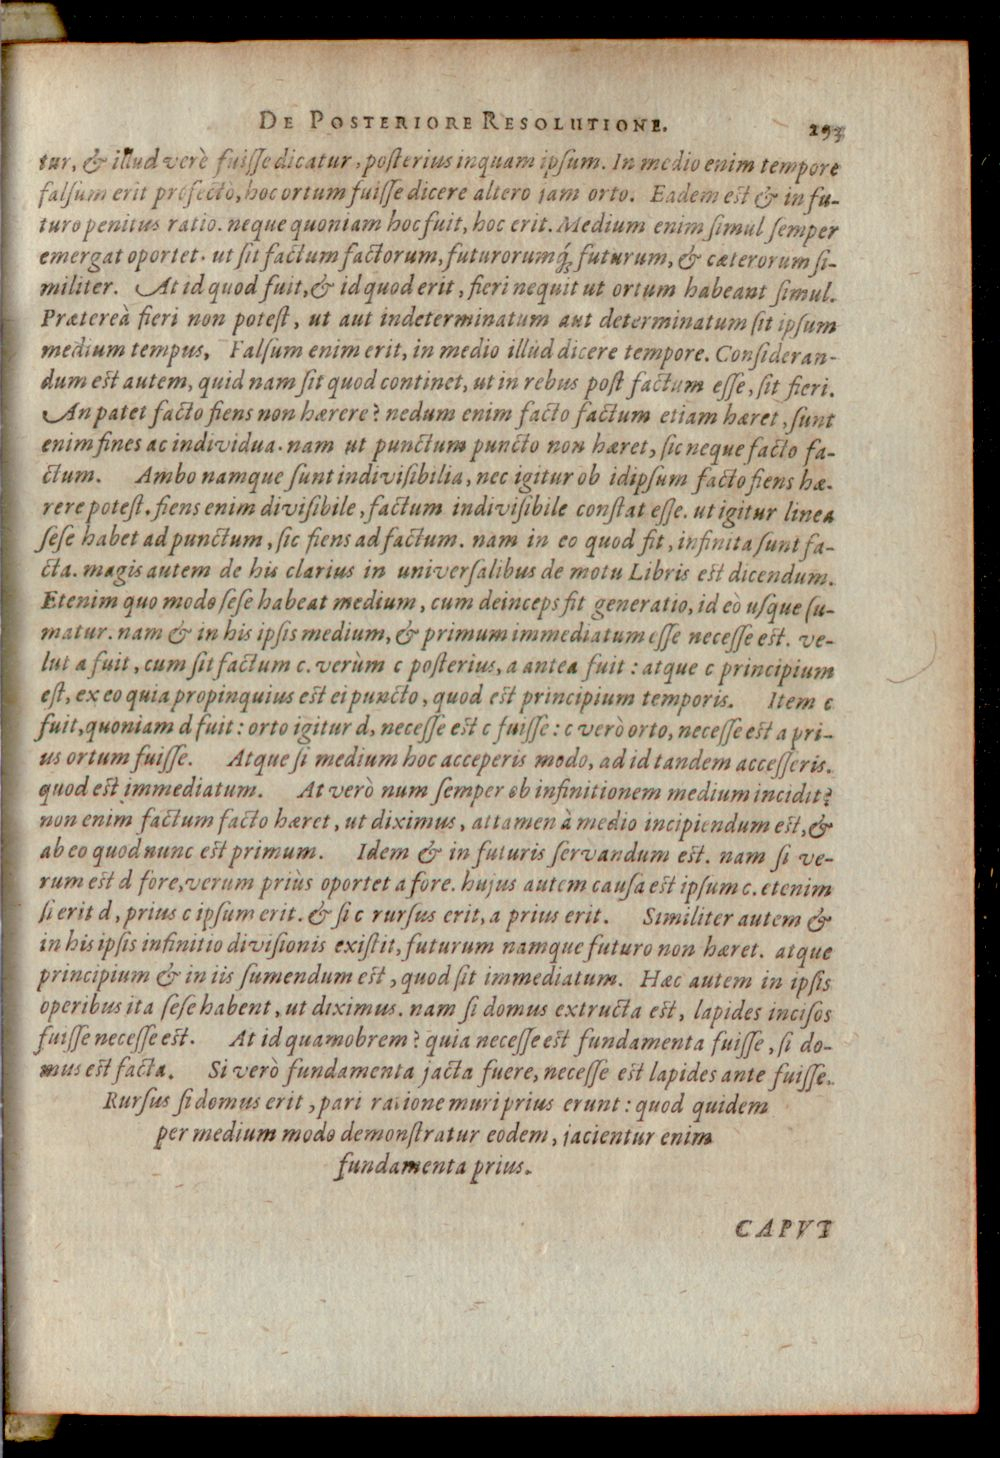 DE POSTERIORE RESOLUTIONE. 293
tur, & illud verè fuiſſe dicatur, poſterius inquam ipſum. In medio enim tempore
falſum erit profectò, hoc ortum fuiſſe dicere altero jam orto. Eadem est & in fu-
turo penitus ratio. neque quoniam hoc fuit, hoc erit. Medium enim ſimul ſemper
emergat oportet. ut ſit factum factorum, futurorumq́; futurum, & cæterorum ſi-
militer. At id quod fuit, & id quod erit, fieri nequit ut ortum habeant ſimul.
Prætereà fieri non poteſt, ut aut indeterminatum aut determinatum ſit ipſum
medium tempus, Falſum enim erit, in medio illud dicere tempore. Conſideran-
dum est autem, quid nam ſit quod continet, ut in rebus poſt factum eſſe, ſit fieri.
An patet facto fiens non hærere? nedum enim facto factum etiam hæret, ſunt
enim fines ac individua. nam ut punctum puncto non hæret, ſic neque facto fa-
ctum. Ambo namque ſunt indiviſibilia, nec igitur ob idipſum facto fiens hæ-
rere poteſt. fiens enim diviſibile, factum indiviſibile conſtat eſſe. ut igitur linea
ſeſe habet ad punctum, ſic fiens ad factum. nam in eo quod fit, infinita ſunt fa-
cta. magis autem de his clarius in univerſalibus de motu Libris est dicendum.
Etenim quo modo ſeſe habeat medium, cum deinceps fit generatio, id eò uſque ſu-
matur. nam & in his ipſis medium, & primum immediatum eſſe neceſſe est. ve-
lut a fuit, cum ſit factum c. verùm c poſterius, a antea fuit: atque c principium
eſt, ex eo quia propinquius est ei puncto, quod est principium temporis. Item c
fuit, quoniam d fuit: orto igitur d, neceſſe est c fuiſſe: c verò orto, neceſſe est a pri-
us ortum fuiſſe. Atque ſi medium hoc acceperis modo, ad id tandem acceſſeris.
quod est immediatum. At verò num ſemper ob infinitionem medium incidit?
non enim factum facto hæret, ut diximus, attamen à medio incipiendum est, &
ab eo quod nunc est primum. Idem & in futuris ſervandum est. nam ſi ve-
rum est d fore, verum priùs oportet a fore. hujus autem cauſa est ipſum c. etenim
ſi erit d, prius c ipſum erit. & ſi c rurſus erit, a prius erit. Similiter autem &
in his ipſis infinitio diviſionis exiſtit, futurum namque futuro non hæret. atque
principium & in iis ſumendum est, quod ſit immediatum. Hæc autem in ipſis
operibus ita ſeſe habent, ut diximus. nam ſi domus extructa est, lapides inciſos
fuiſſe neceſſe est. At id quamobrem? quia neceſſe est fundamenta fuiſſe, ſi do-
mus est facta. Si verò fundamenta jacta fuere, neceſſe est lapides ante fuiſſe.
Rurſus ſi domus erit, pari ratione muri prius erunt: quod quidem
per medium modo demonſtratur eodem, jacientur enim
fundamenta prius.
CAPVT